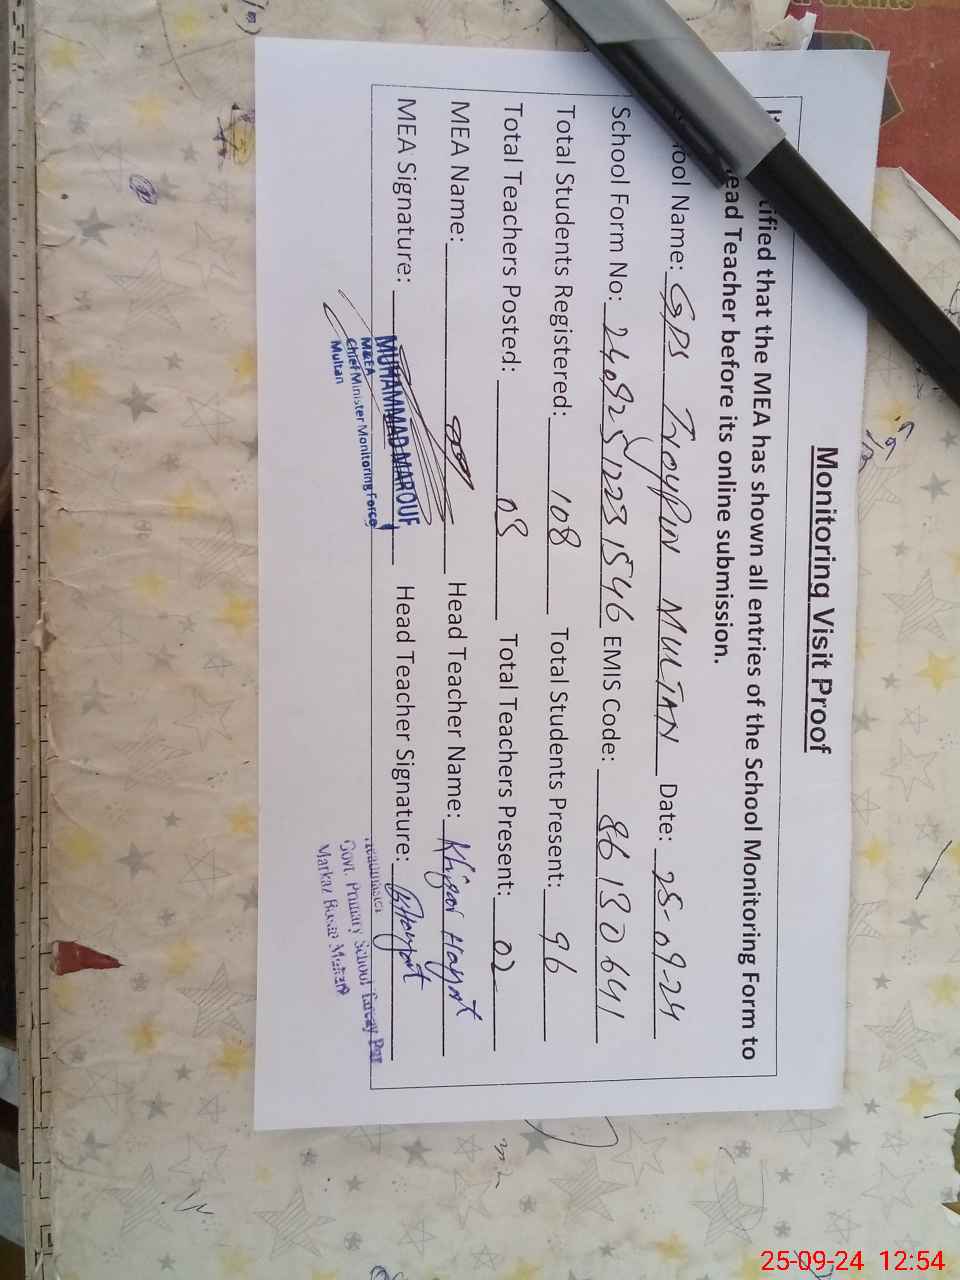 Monitoring Visit Proof
tified that the MEA has shown all entries of the School Monitoring Form to
ead Teacher before its online submission.
ool Name: GPS MULTAN Date: 25-09-24
School Form No: EMIS Code:
Total Students Registered: 108 Total Students Present: 96
Total Teachers Posted: 03 Total Teachers Present: 02
MEA Name: Head Teacher Name: Hayat
MEA Signature: Head Teacher Signature:
MUHAMMAD MAROUF
M&EA
Chief Minister Monitoring Force
Multan
Govt. Primary School
Markaz
25-09-24 12:54